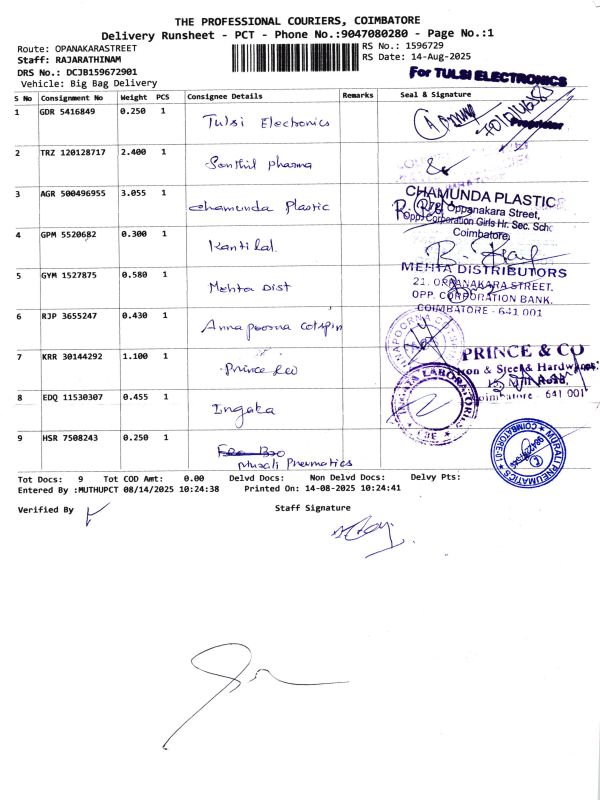 THE PROFESSIONAL COURIERS, COIMBATORE
Delivery Runsheet - PCT - Phone No.:9047080280 - Page No.:1
Route: OPANAKARASTREET
RS No.: 1596729
Staff: RAJARATHINAM
RS Date: 14-Aug-2025
DRS No.: DCJB159672901
Vehicle: Big Bag Delivery
For TULSI ELECTRONICS
Proprietor
S No Consignment No Weight PCS Consignee Details Remarks Seal & Signature
1 GDR 5416849 0.250 1 Tulsi Electronics
2 TRZ 120128717 2.400 1 Senthil pharma
3 AGR 500496955 3.055 1 chamunda Plastic
CHAMUNDA PLASTICS
Oppanakara Street,
Opp. Corporation Girls Hr. Sec. Sch
Coimbatore
4 GPM 5520682 0.300 1 Kantilal
5 GYM 1527875 0.580 1 Mehta Dist
MEHTA DISTRIBUTORS
21. OPPANAKARA STREET.
OPP. CORPORATION BANK.
COIMBATORE - 641 001
6 RJP 3655247 0.430 1 Annapoorna cotspin
7 KRR 30144292 1.100 1 Prince &co
PRINCE & CO
Iron & Steel & Hardware
Mill Road,
Coimbatore - 641 001
8 EDQ 11530307 0.455 1 Ingaka
LABORATORIES
CBE
9 HSR 7508243 0.250 1
Murali Pneumatics
MURALI PNEUMATICS
COIMBATORE-01
Tot Docs: 9 Tot COD Amt: 0.00 Delvd Docs: Non Delvd Docs: Delvy Pts:
Entered By :MUTHUPCT 08/14/2025 10:24:38 Printed On: 14-08-2025 10:24:41
Verified By
Staff Signature